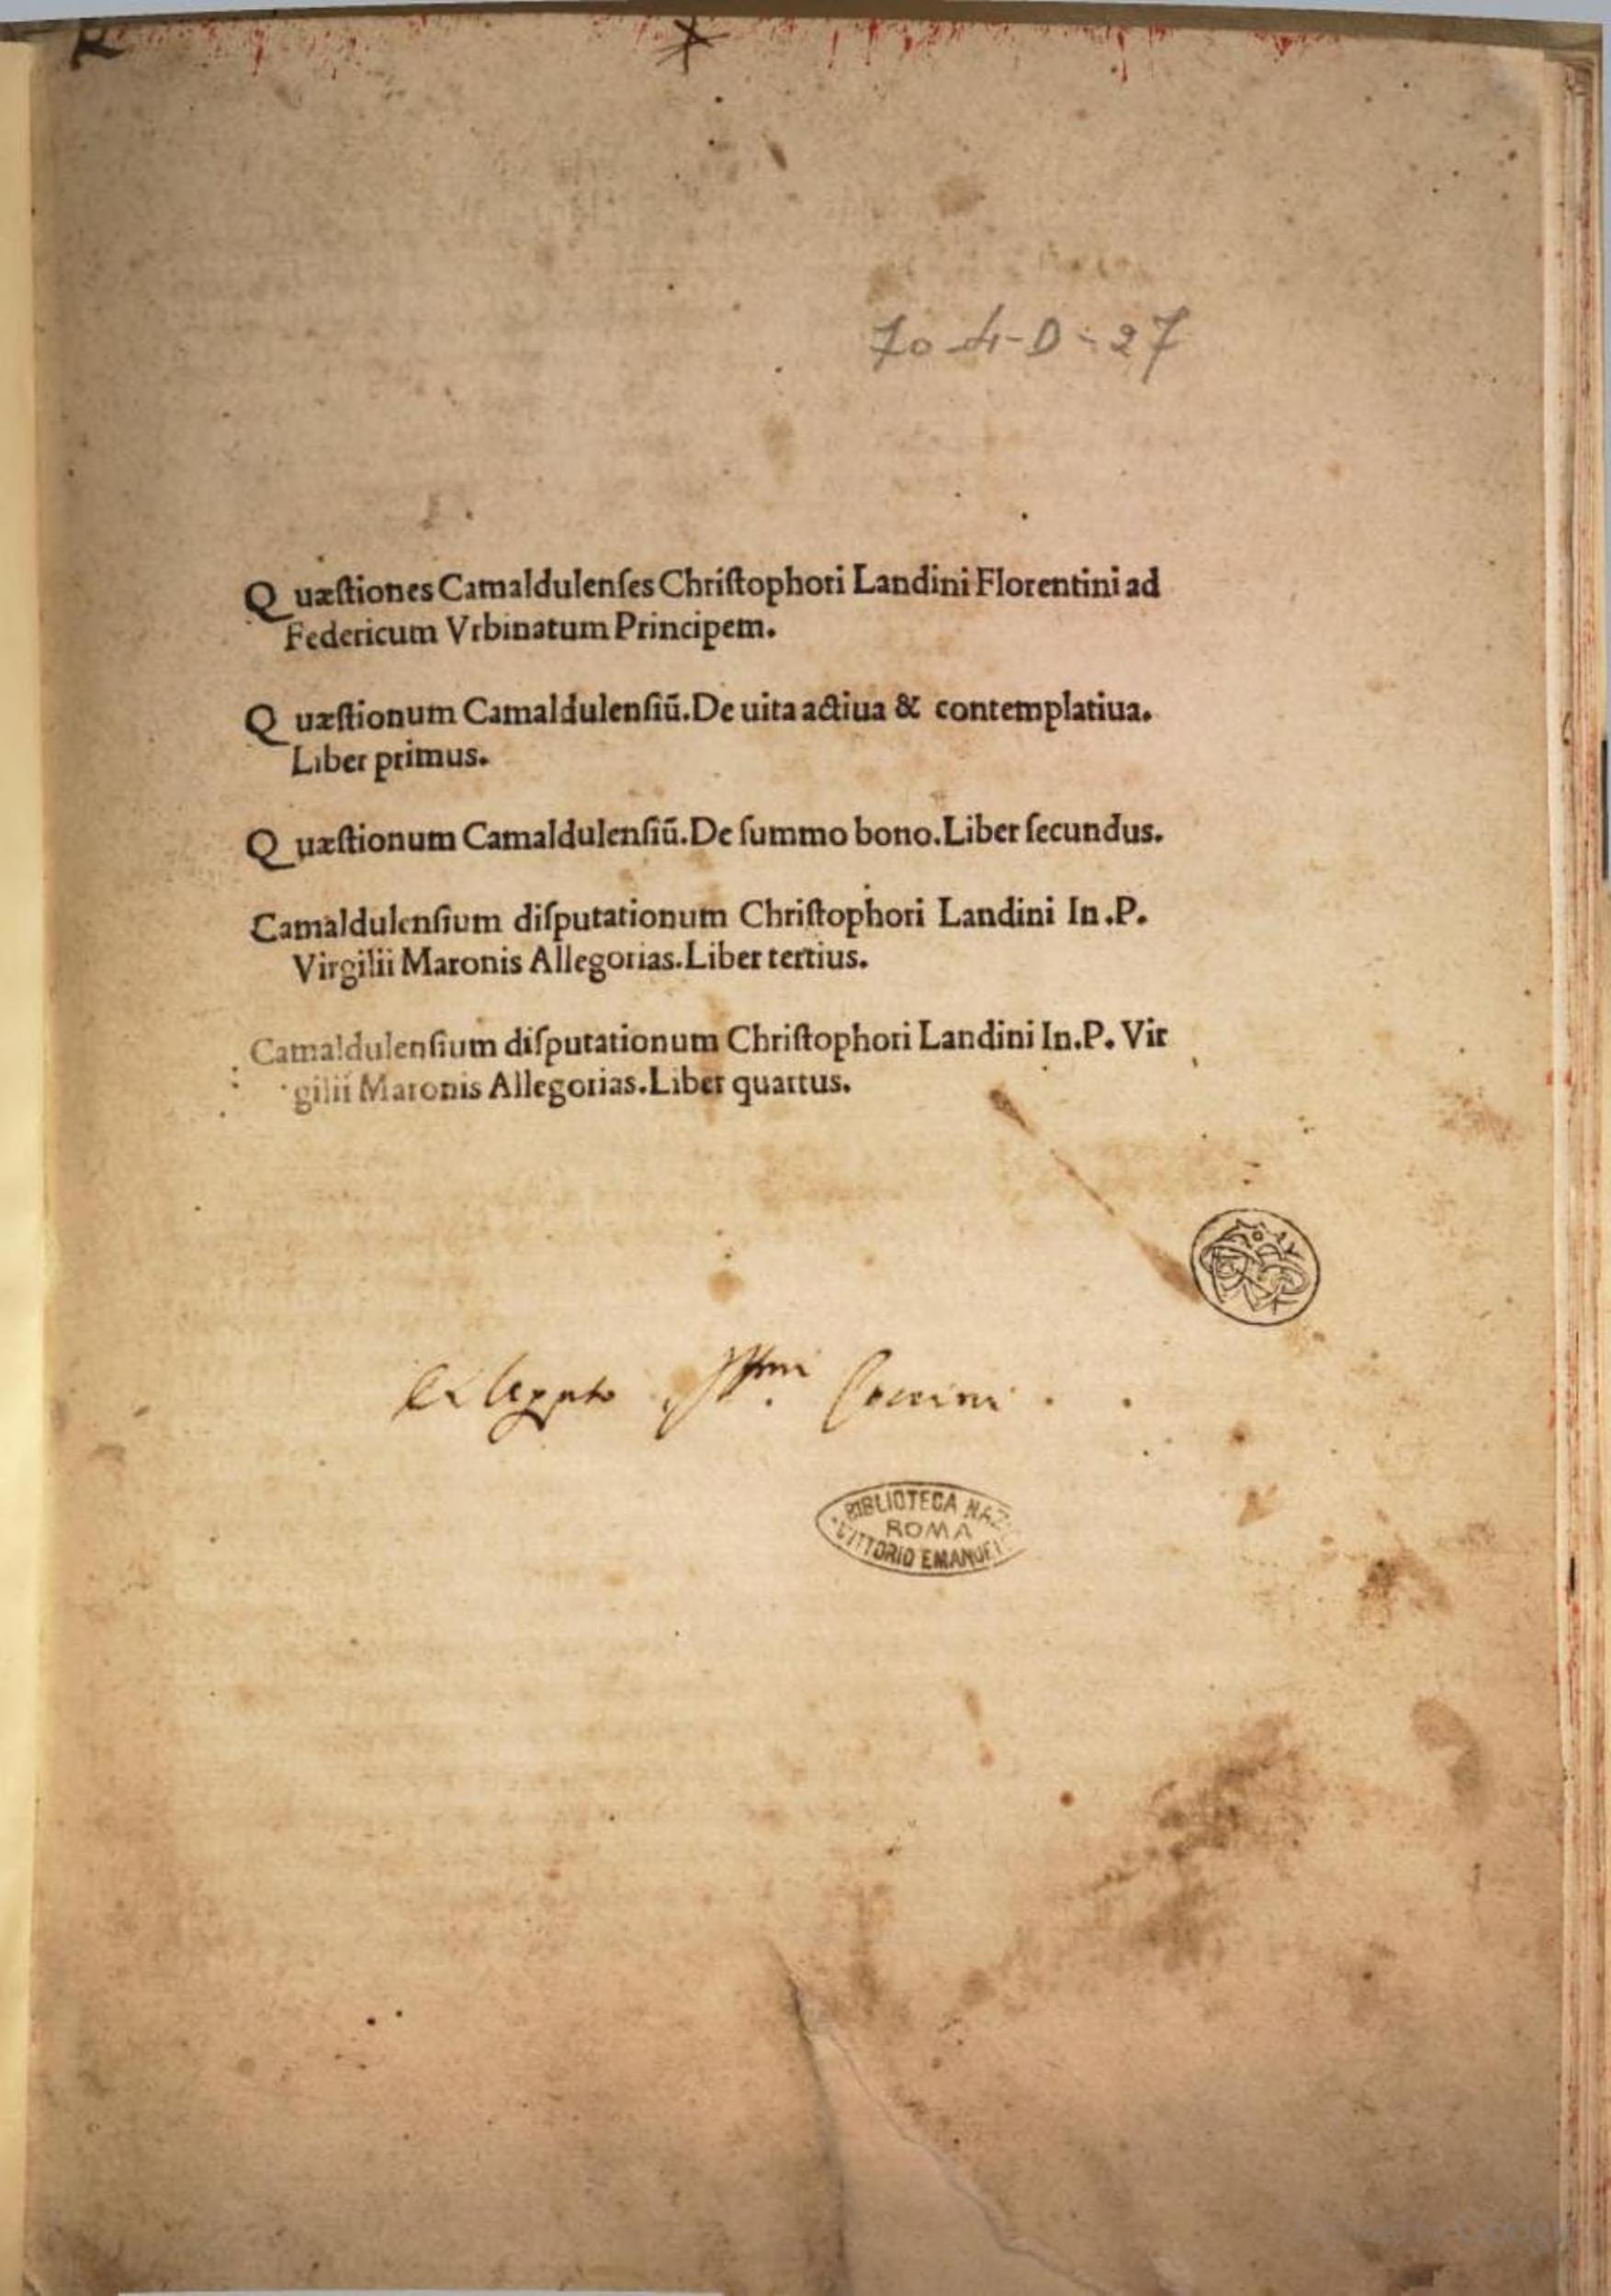 70-4-D-27
Quæſtiones Camaldulenſes Chriſtophori Landini Florentini ad
Federicum Vrbinatum Principem.
Quæſtionum Camaldulenſiū. De uita actiua & contemplatiua.
Liber primus.
Quæſtionum Camaldulenſiū. De ſummo bono. Liber ſecundus.
Camaldulenſium diſputationum Chriſtophori Landini In .P.
Virgilii Maronis Allegorias. Liber tertius.
Camaldulenſium diſputationum Chriſtophori Landini In .P. Vir
gilii Maronis Allegorias. Liber quartus.
Ex legato Illmi Coccini.
BIBLIOTECA NAZ
ROMA
VITTORIO EMANUE